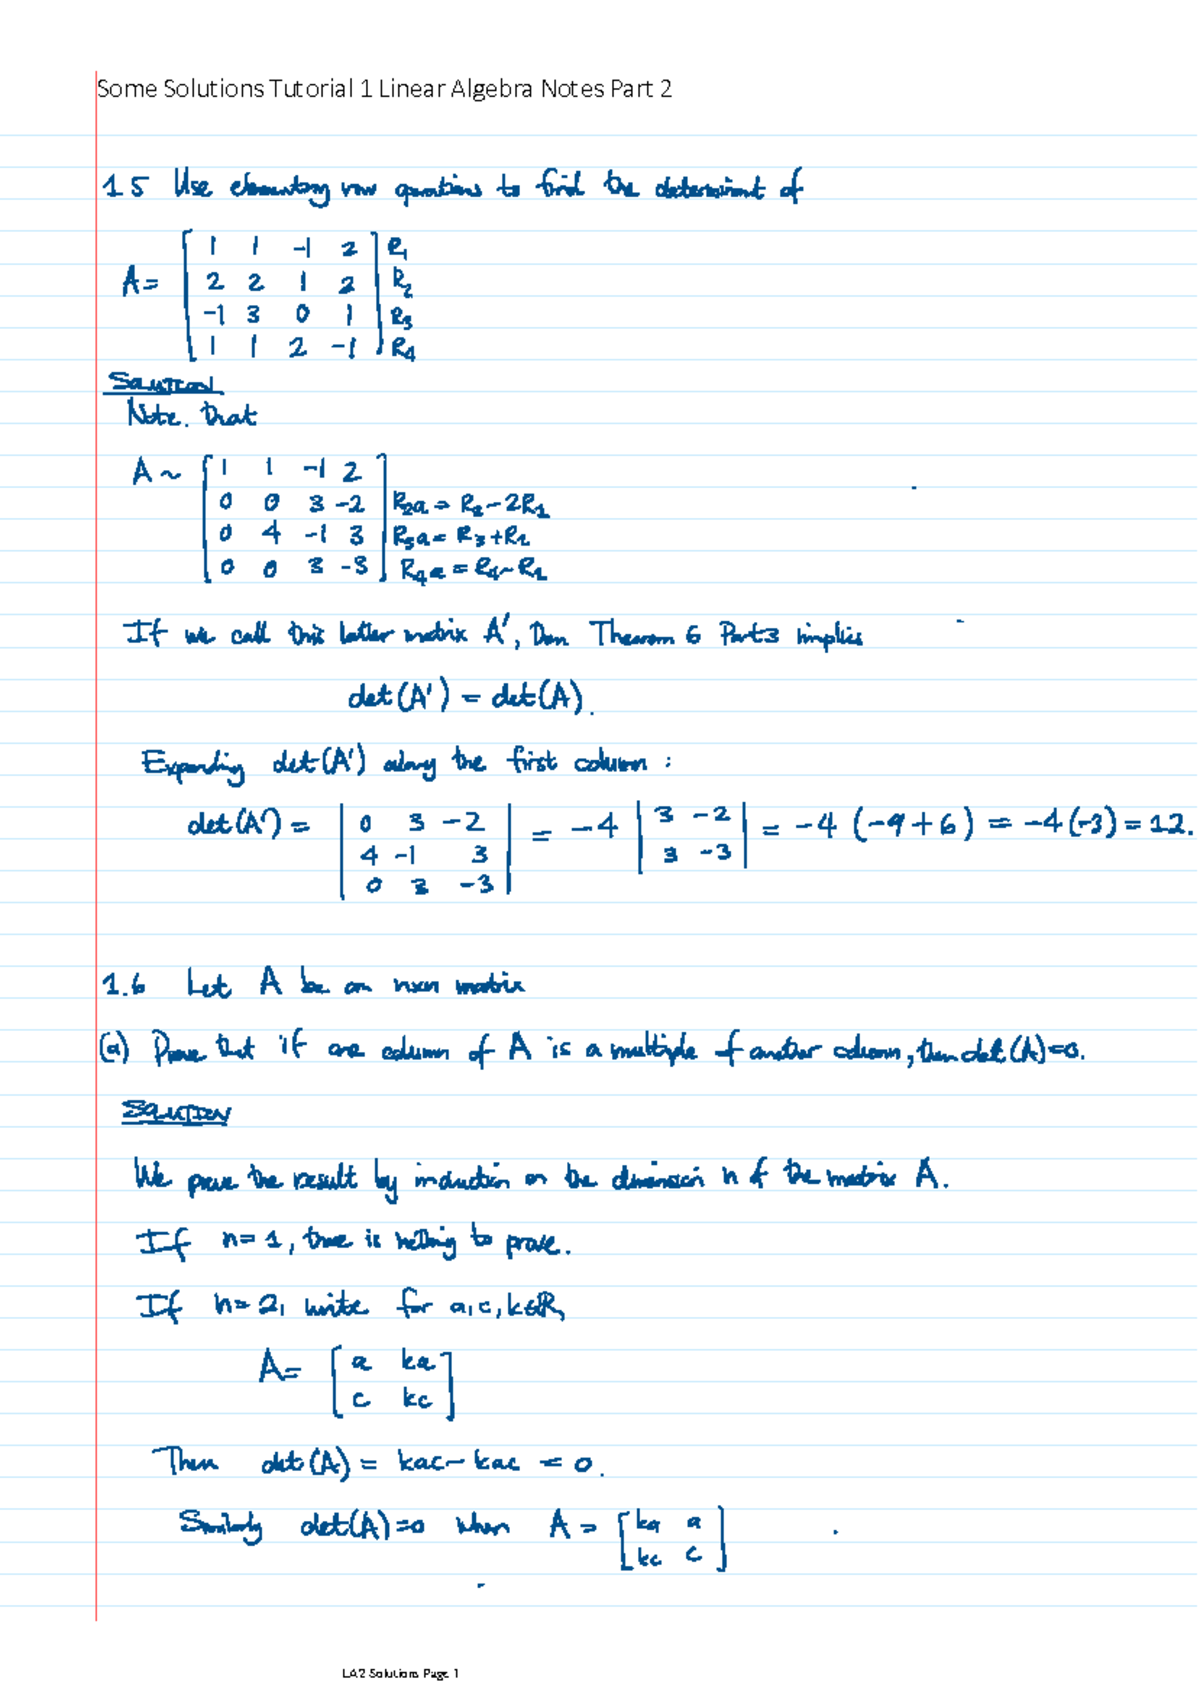 Some Solutions Tutorial 1 Linear Algebra Notes Part 2
1.5 Use elementary row operations to find the determinant of
A = [ 1 1 -1 2 ] R1
[ 2 2 1 2 ] R2
[ -1 3 0 1 ] R3
[ 1 1 2 -1 ] R4
SOLUTION
Note. that
A ~ [ 1 1 -1 2 ]
[ 0 0 3 -2 ] R2a = R2 - 2R1
[ 0 4 -1 3 ] R3a = R3 + R1
[ 0 0 3 -3 ] R4a = R4 - R1
If we call this latter matrix A', then Theorem 6 Part 3 implies
det(A') = det(A).
Expanding det(A') along the first column :
det(A') = | 0 3 -2 | = -4 | 3 -2 | = -4 (-9+6) = -4(-3) = 12.
| 4 -1 3 | | 3 -3 |
| 0 3 -3 |
1.6 Let A be an nxn matrix
(a) Prove that if one column of A is a multiple of another column, then det(A)=0.
SOLUTION
We prove the result by induction on the dimension n of the matrix A.
If n=1, there is nothing to prove.
If n=2, write for a,c,k∈R,
A = [ a ka ]
[ c kc ]
Then det(A) = kac - kac = 0.
Similarly det(A)=0 when A = [ ka a ]
[ kc c ]
LA2 Solutions Page 1